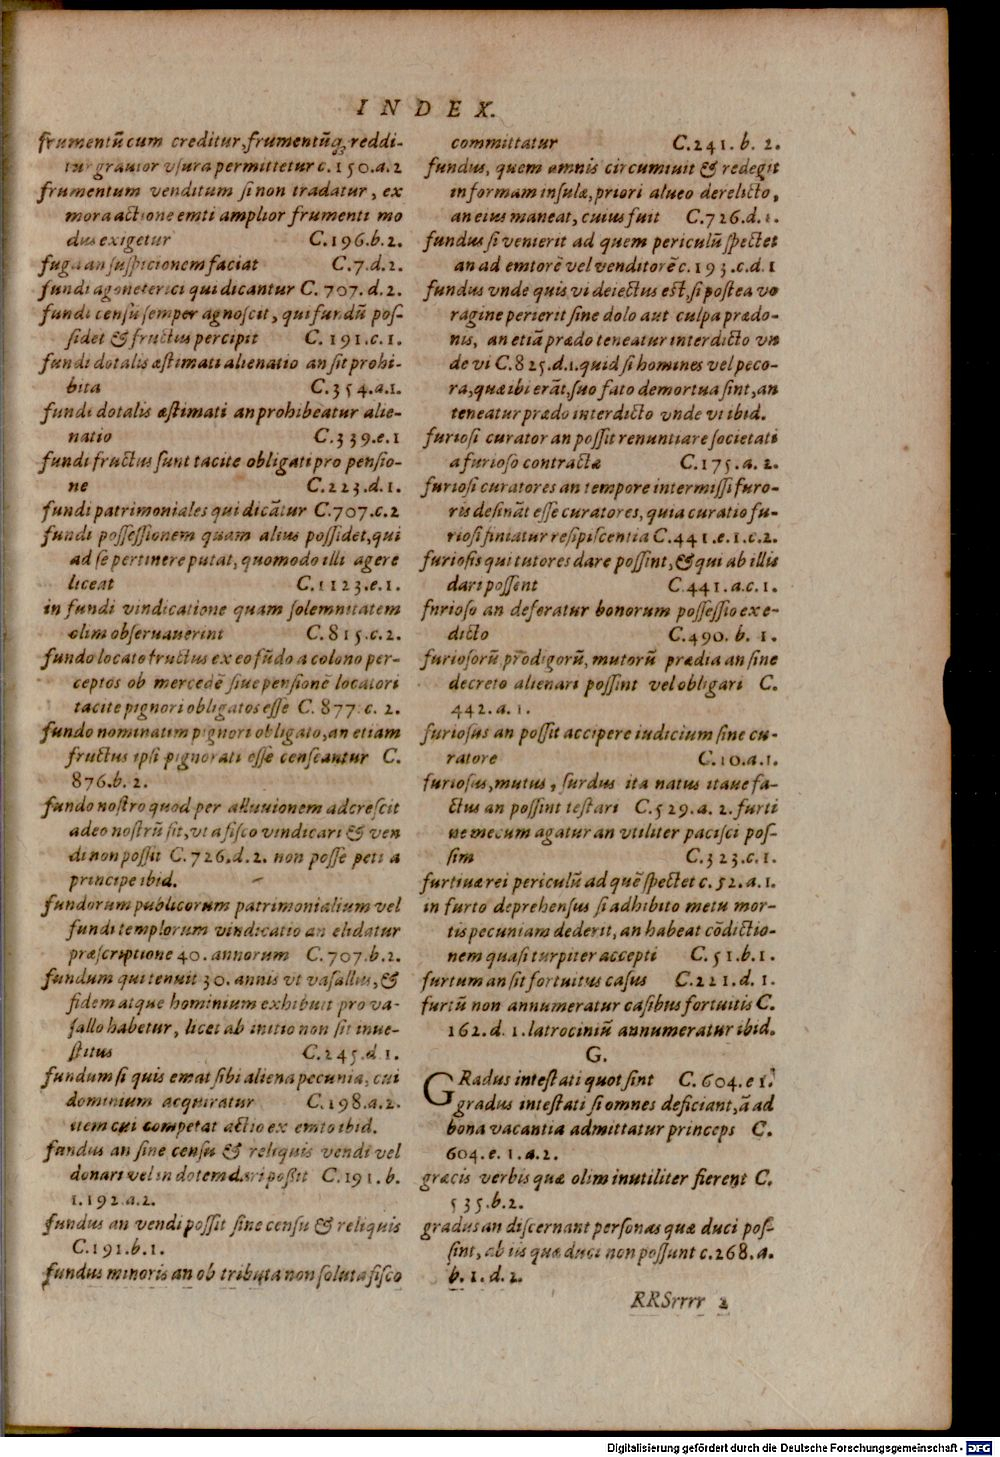 INDEX.
frumentũ cum creditur, frumentũq; reddi-
tur grauior vsura permittetur c. 150.a.2
frumentum venditum si non tradatur, ex
mora actione emti amplior frumenti mo
dus exigetur C.196.b.2.
fuga an suspicionem faciat C.7.d.2.
fundi agoneterici qui dicantur C. 707. d.2.
fundi censũ semper agnoscit, qui fundũ pos-
sidet & fructus percipit C. 191.c.1.
fundi dotalis æstimati alienatio an sit prohi-
bita C.354.a.1.
fundi dotalis æstimati an prohibeatur alie-
natio C.339.e.1
fundi fructus sunt tacite obligati pro pensio-
ne C.223.d.1.
fundi patrimoniales qui dicãtur C.707.c.2
fundi possessionem quam alius possidet, qui
ad se pertinere putat, quomodo illi agere
liceat C.1123.e.1.
in fundi vindicatione quam solemnitatem
olim obseruauerint C.815.c.2.
fundo locato fructus ex eo fũdo a colono per-
ceptos ob mercedẽ siue pensionẽ locatori
tacite pignori obligatos esse C. 877.c.2.
fundo nominatim pignori obligato, an etiam
fructus ipsi pignorati esse censeantur C.
876.b.2.
fundo nostro quod per alluuionem adcrescit
adeo nostrũ sit, vt a fisco vindicari & ven
di non possit C.726.d.2. non posse peti a
principe ibid.
fundorum publicorum patrimonialium vel
fundi templorum vindicatio an elidatur
præscriptione 40. annorum C.707.b.2.
fundum qui tenuit 30. annis vt vasallus, &
fidem atque hominium exhibuit pro va-
sallo habetur, licet ab initio non sit inue-
stitus C.245.d.1.
fundum si quis emat sibi aliena pecunia, cui
dominium acquiratur C.198.a.2.
item cui competat actio ex emto ibid.
fundus an sine censu & reliquis vendi vel
donari vel in dotem dari possit C.191.b.
1.192.a.2.
fundus an vendi possit sine censu & reliquis
C.191.b.1.
fundus minoris an ob tributa non soluta fisco
committatur C.241.b.2.
fundus, quem amnis circumiuit & redegit
in formam insulæ, priori alueo derelicto,
an eius maneat, cuius fuit C.726.d.1.
fundus si venierit ad quem periculũ spectet
an ad emtorẽ vel venditorẽ c.193.c.d.1
fundus vnde quis vi deiectus est, si postea vo
ragine perierit sine dolo aut culpa prædo-
nis, an etiã prædo teneatur interdicto vn
de vi C.825.d.1. quid si homines vel peco-
ra, quæ ibi erãt, suo fato demortua sint, an
teneatur prædo interdicto vnde vi ibid.
furiosi curator an possit renuntiare societati
a furioso contractæ C.175.a.2.
furiosi curatores an tempore intermissi furo-
ris desinãt esse curatores, quia curatio fu-
riosi finiatur resipiscentia C.441.e.1.c.2.
furiosis qui tutores dare possint, & qui ab illis
dari possent C.441.a.c.1.
furioso an deferatur bonorum possessio ex e-
dicto C.490. b. 1.
furiosorũ, prodigorũ, mutorũ prædia an sine
decreto alienari possint vel obligari C.
442.a.1.
furiosus an possit accipere iudicium sine cu-
ratore C.10.a.1.
furiosus, mutus, surdus ita natus itaue fa-
ctus an possint testari C.529.a.2. furti
ne mecum agatur an vtiliter pacisci pos-
sim C.323.c.1.
furtiuæ rei periculũ ad quẽ spectet c.52.a.1.
in furto deprehensus si adhibito metu mor-
tis pecuniam dederit, an habeat cõdictio-
nem quasi turpiter accepti C.51.b.1.
furtum an sit fortuitus casus C.221.d.1.
furtũ non annumeratur casibus fortuitis C.
162.d.1. latrociniũ annumeratur ibid.
G.
GRadus intestati quot sint C. 604.e 1.
gradus intestati si omnes deficiant, ã ad
bona vacantia admittatur princeps C.
604.e.1.a.2.
græcis verbis quæ olim inutiliter fierent C.
535.b.2.
gradus an discernant personas quæ duci pos-
sint, ab iis quæ duci non possunt c.268.a.
b.1.d.2.
RRSrrrr 2
Digitalisierung gefördert durch die Deutsche Forschungsgemeinschaft - DFG